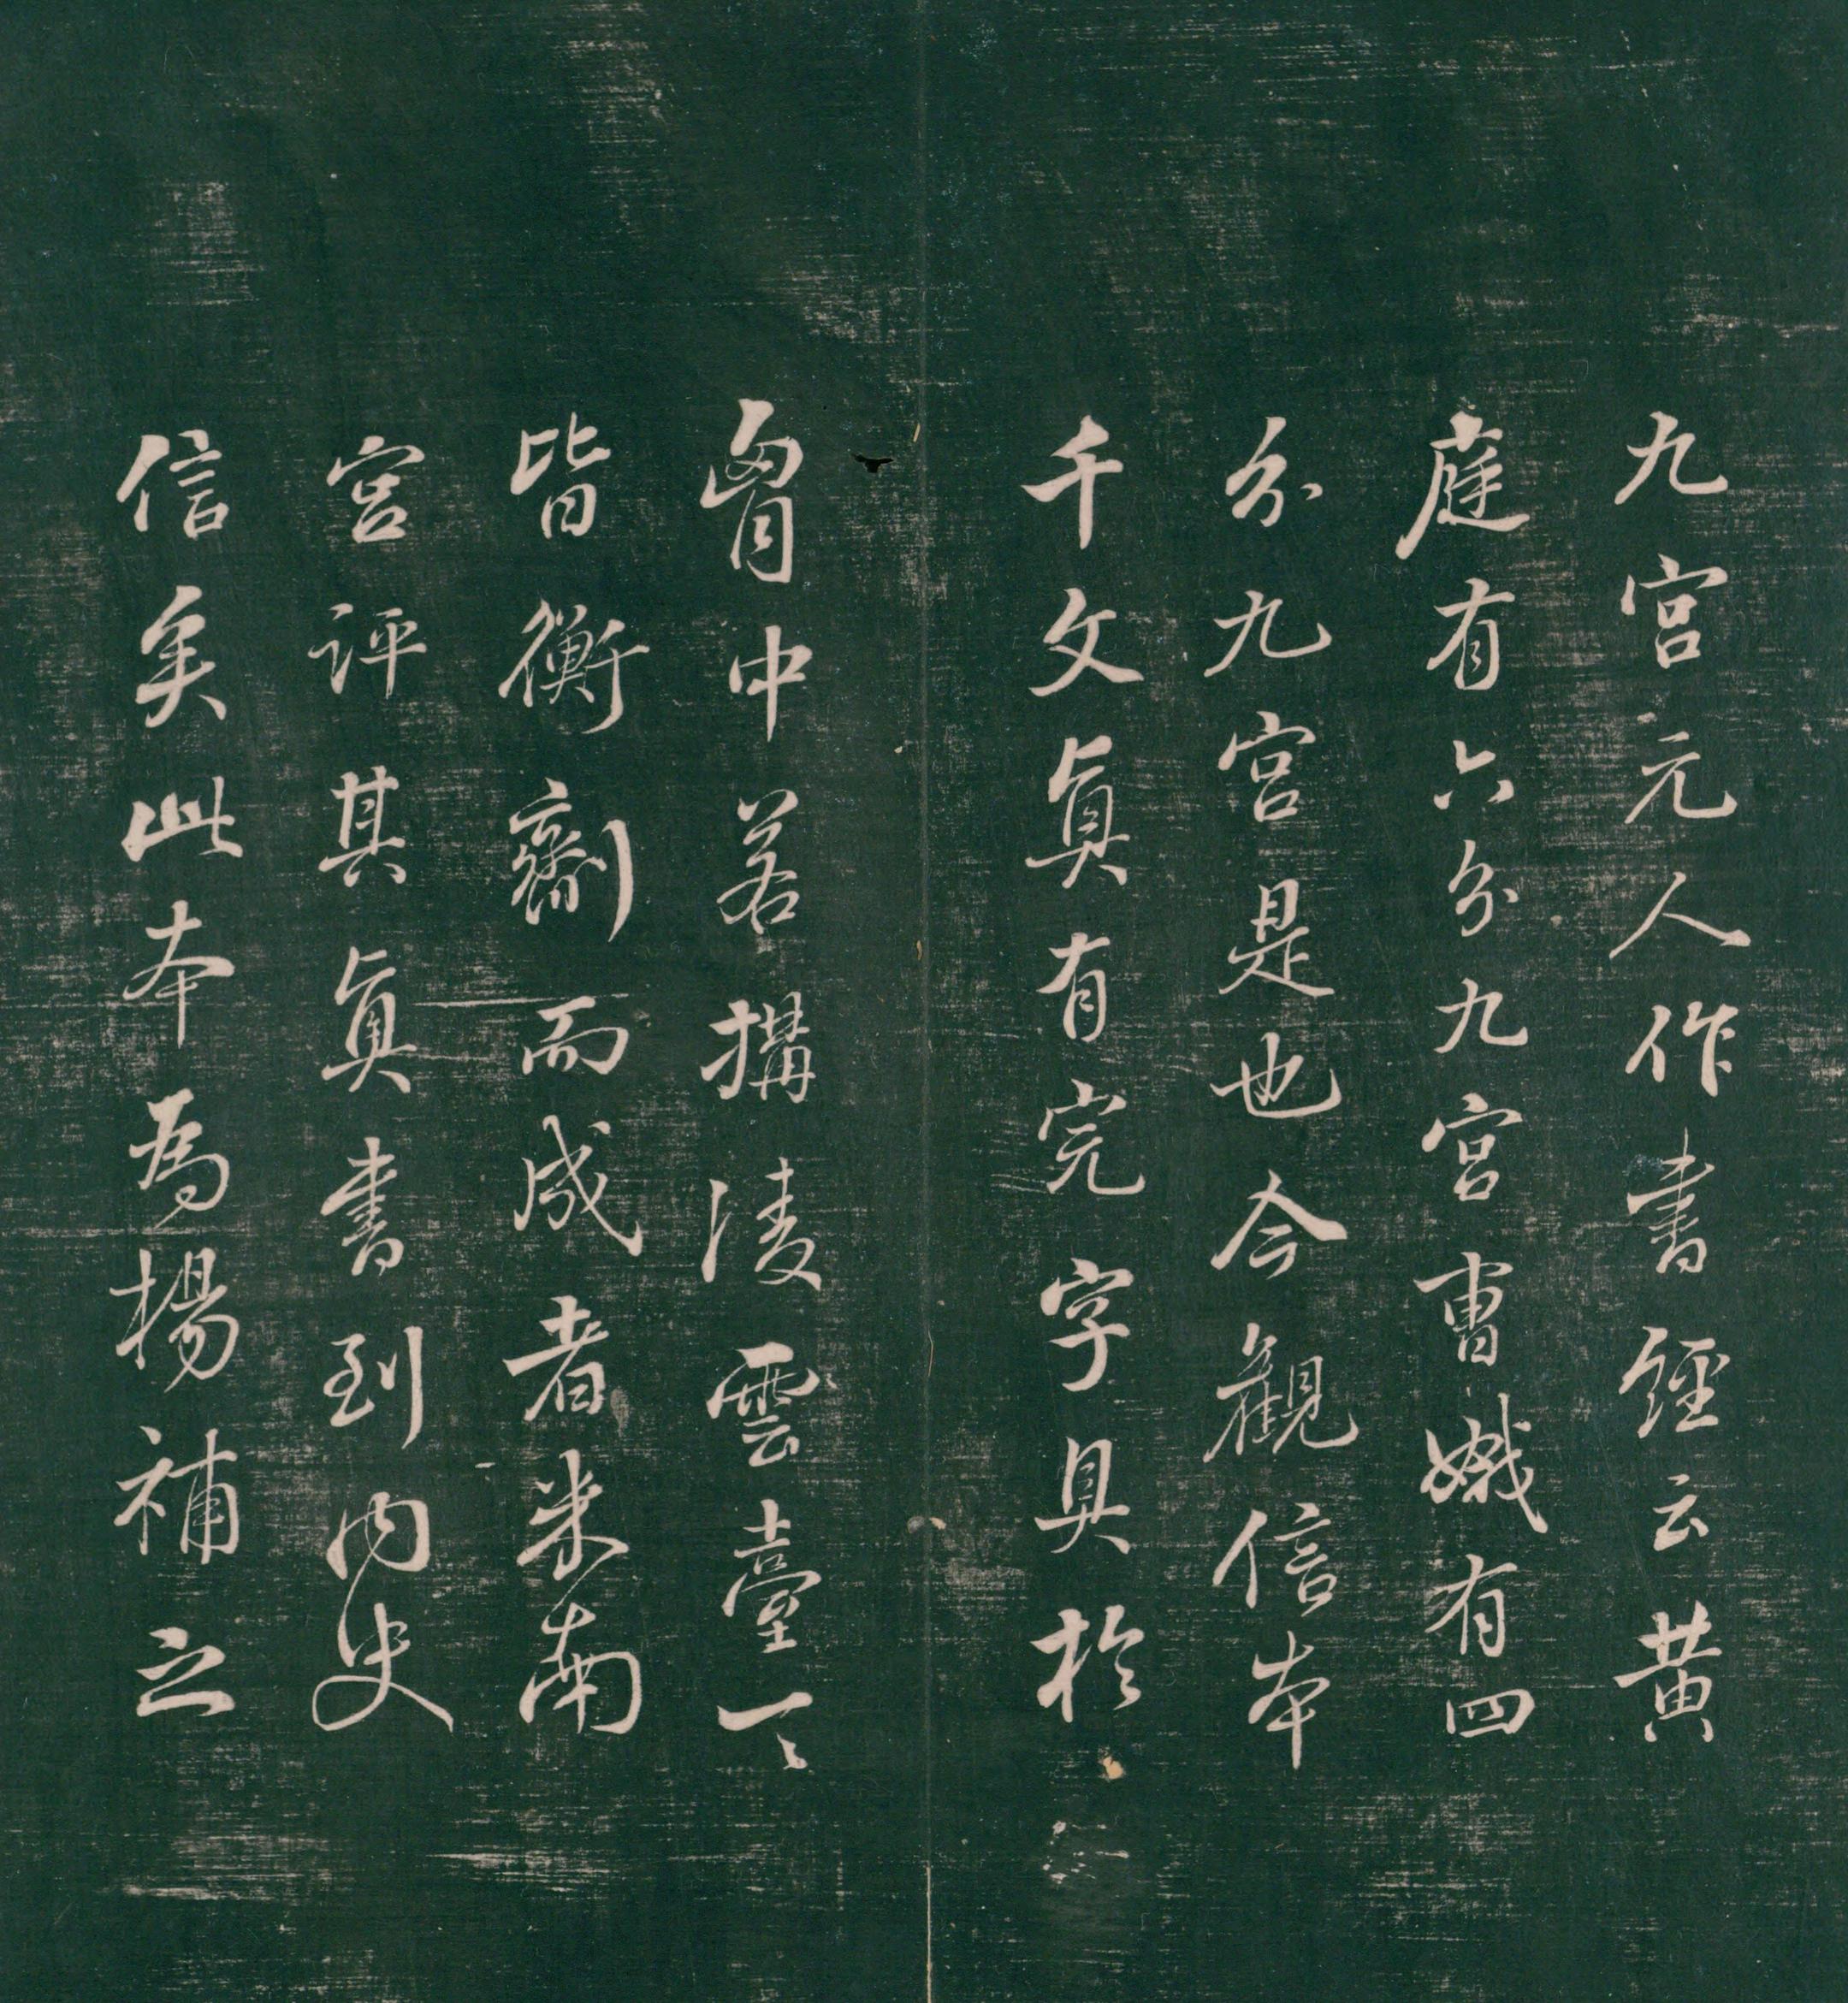 九宮元人作書經云黃
庭有六分九宮曹娥有四
分九宮是也今觀信本
千文真有完字具於
胷中若構淩雲臺一一
皆衡劑而成者米南
宮評其真書到內史
信矣此本為楊補之